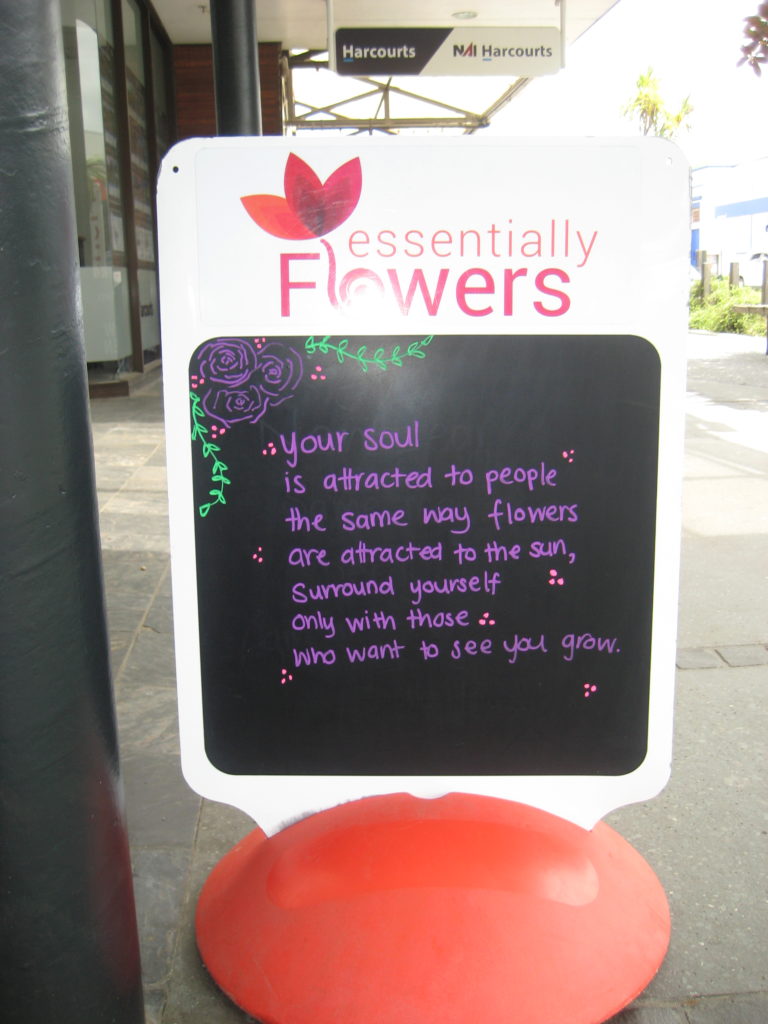 Harcourts NAI Harcourts
essentially
Flowers
your soul
is attracted to people
the same way flowers
are attracted to the sun,
Surround yourself
only with those
who want to see you grow.